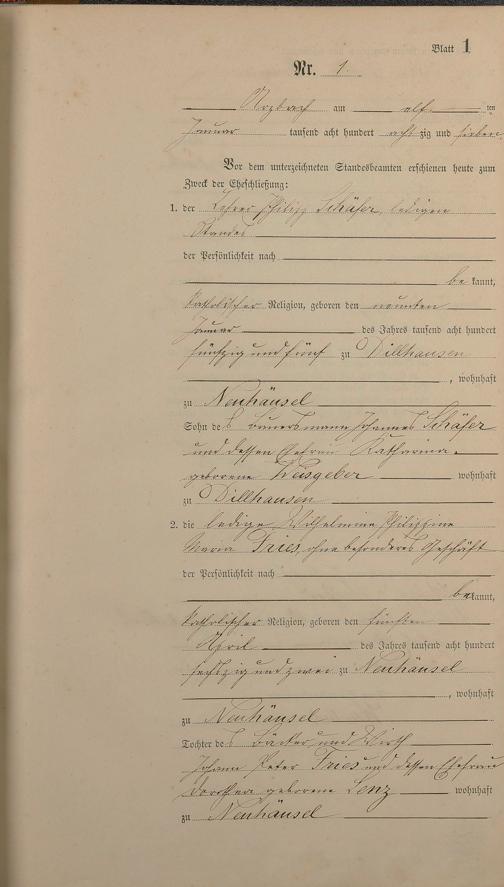 Blatt 1
Nr. 1.
Arzbach am elften
Januar tausend acht hundert achtzig und sieben
Vor dem unterzeichneten Standesbeamten erschienen heute zum
Zweck der Eheschließung:
1. der Lehrer Philipp Schäfer, ledigen
Standes
der Persönlichkeit nach
bekannt,
katholischer Religion, geboren den neunten
Januar des Jahres tausend acht hundert
fünfzig und fünf zu Dillhausen
, wohnhaft
zu Neuhäusel
Sohn des Bauersmann Johannes Schäfer
und dessen Ehefrau Katharina
geborene Weisgeber wohnhaft
zu Dillhausen
2. die ledige Wilhelmine Philippine
Maria Fries, ohne besonderes Geschäft
der Persönlichkeit nach
bekannt,
katholischer Religion, geboren den fünften
April des Jahres tausend acht hundert
sechzig und zwei zu Neuhäusel
, wohnhaft
zu Neuhäusel
Tochter des Bäcker und Wirth
Johann Peter Fries und dessen Ehefrau
Dorothea geborene Lenz wohnhaft
zu Neuhäusel